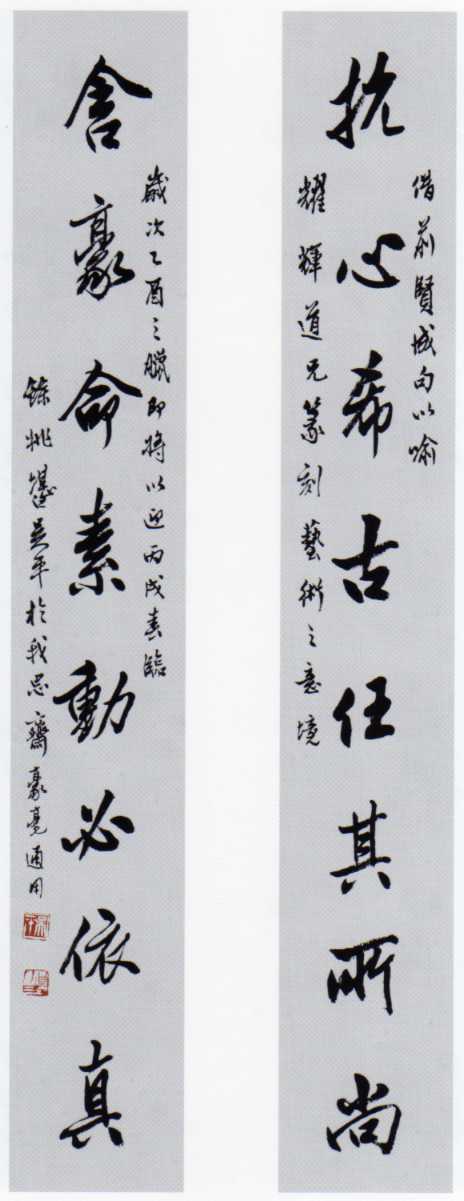 抗心希古任其所尚
借前賢成句以喻
耀輝道兄篆刻藝術之意境
含豪命素動必依真
歲次乙酉之臘即將以迎丙戌春臨
餘姚堪吳平於我思齋豪亳通用